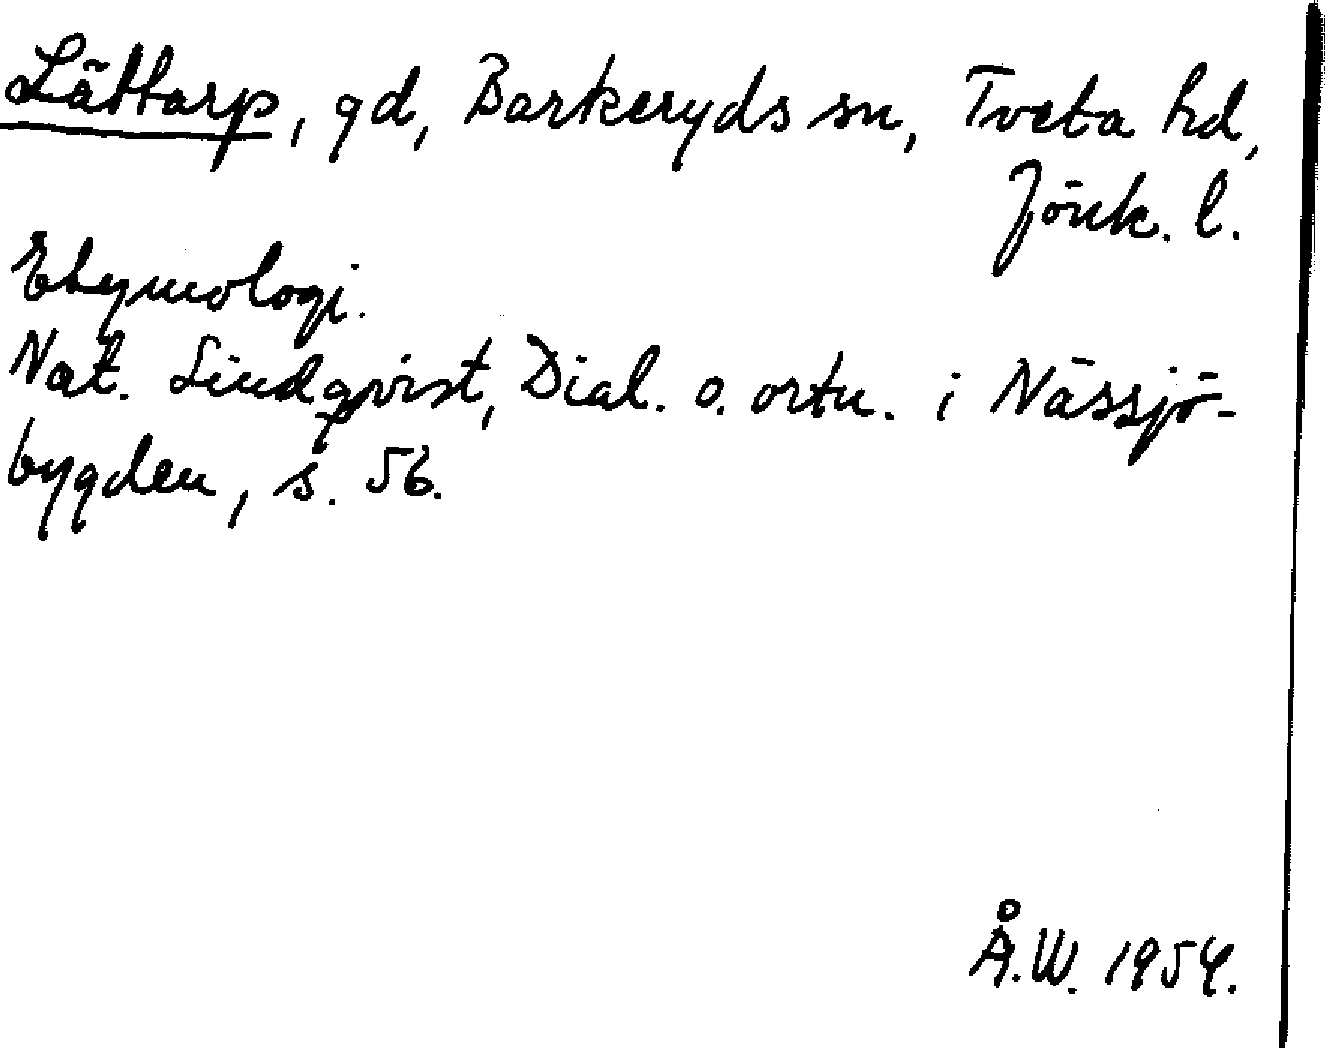 Lättarp, gd, Barkeryds sn, Tveta hd,
Jönk. l.
Etymologi.
Nat. Lindqvist, Dial. o. ortn. i Nässjö-
bygden, s. 56.
Å.W. 1954.